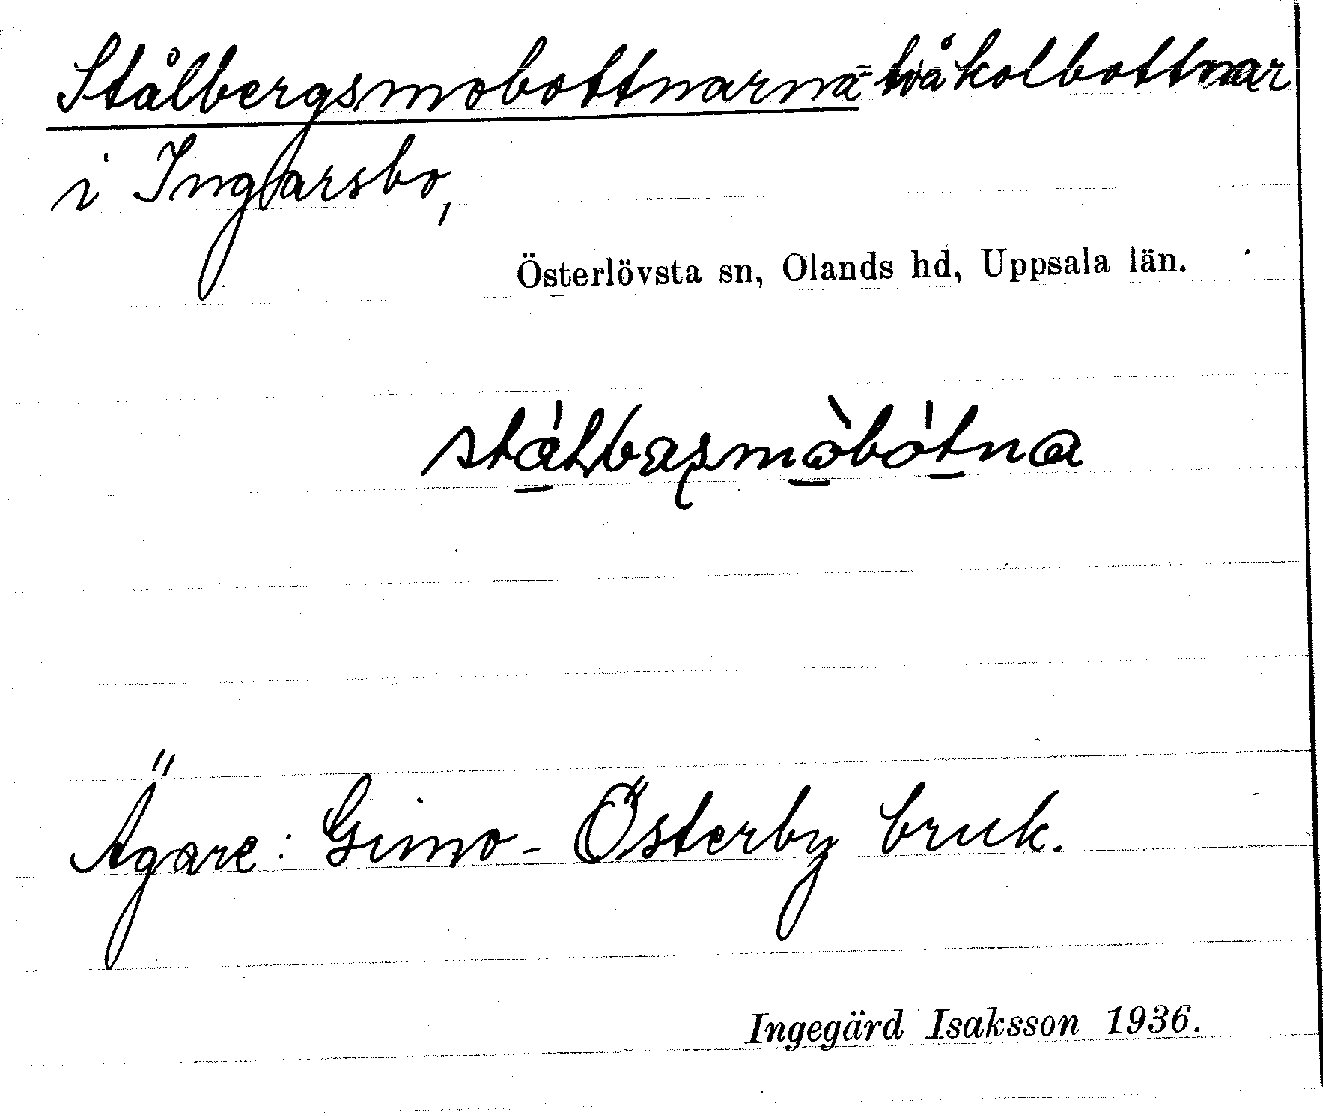 Stålbergsmobottnarna - två kolbottnar
i Ingvarsbo,
Österlövsta sn, Olands hd, Uppsala län.
Ägare: Gimo-Österby bruk.
Ingegärd Isaksson 1936.